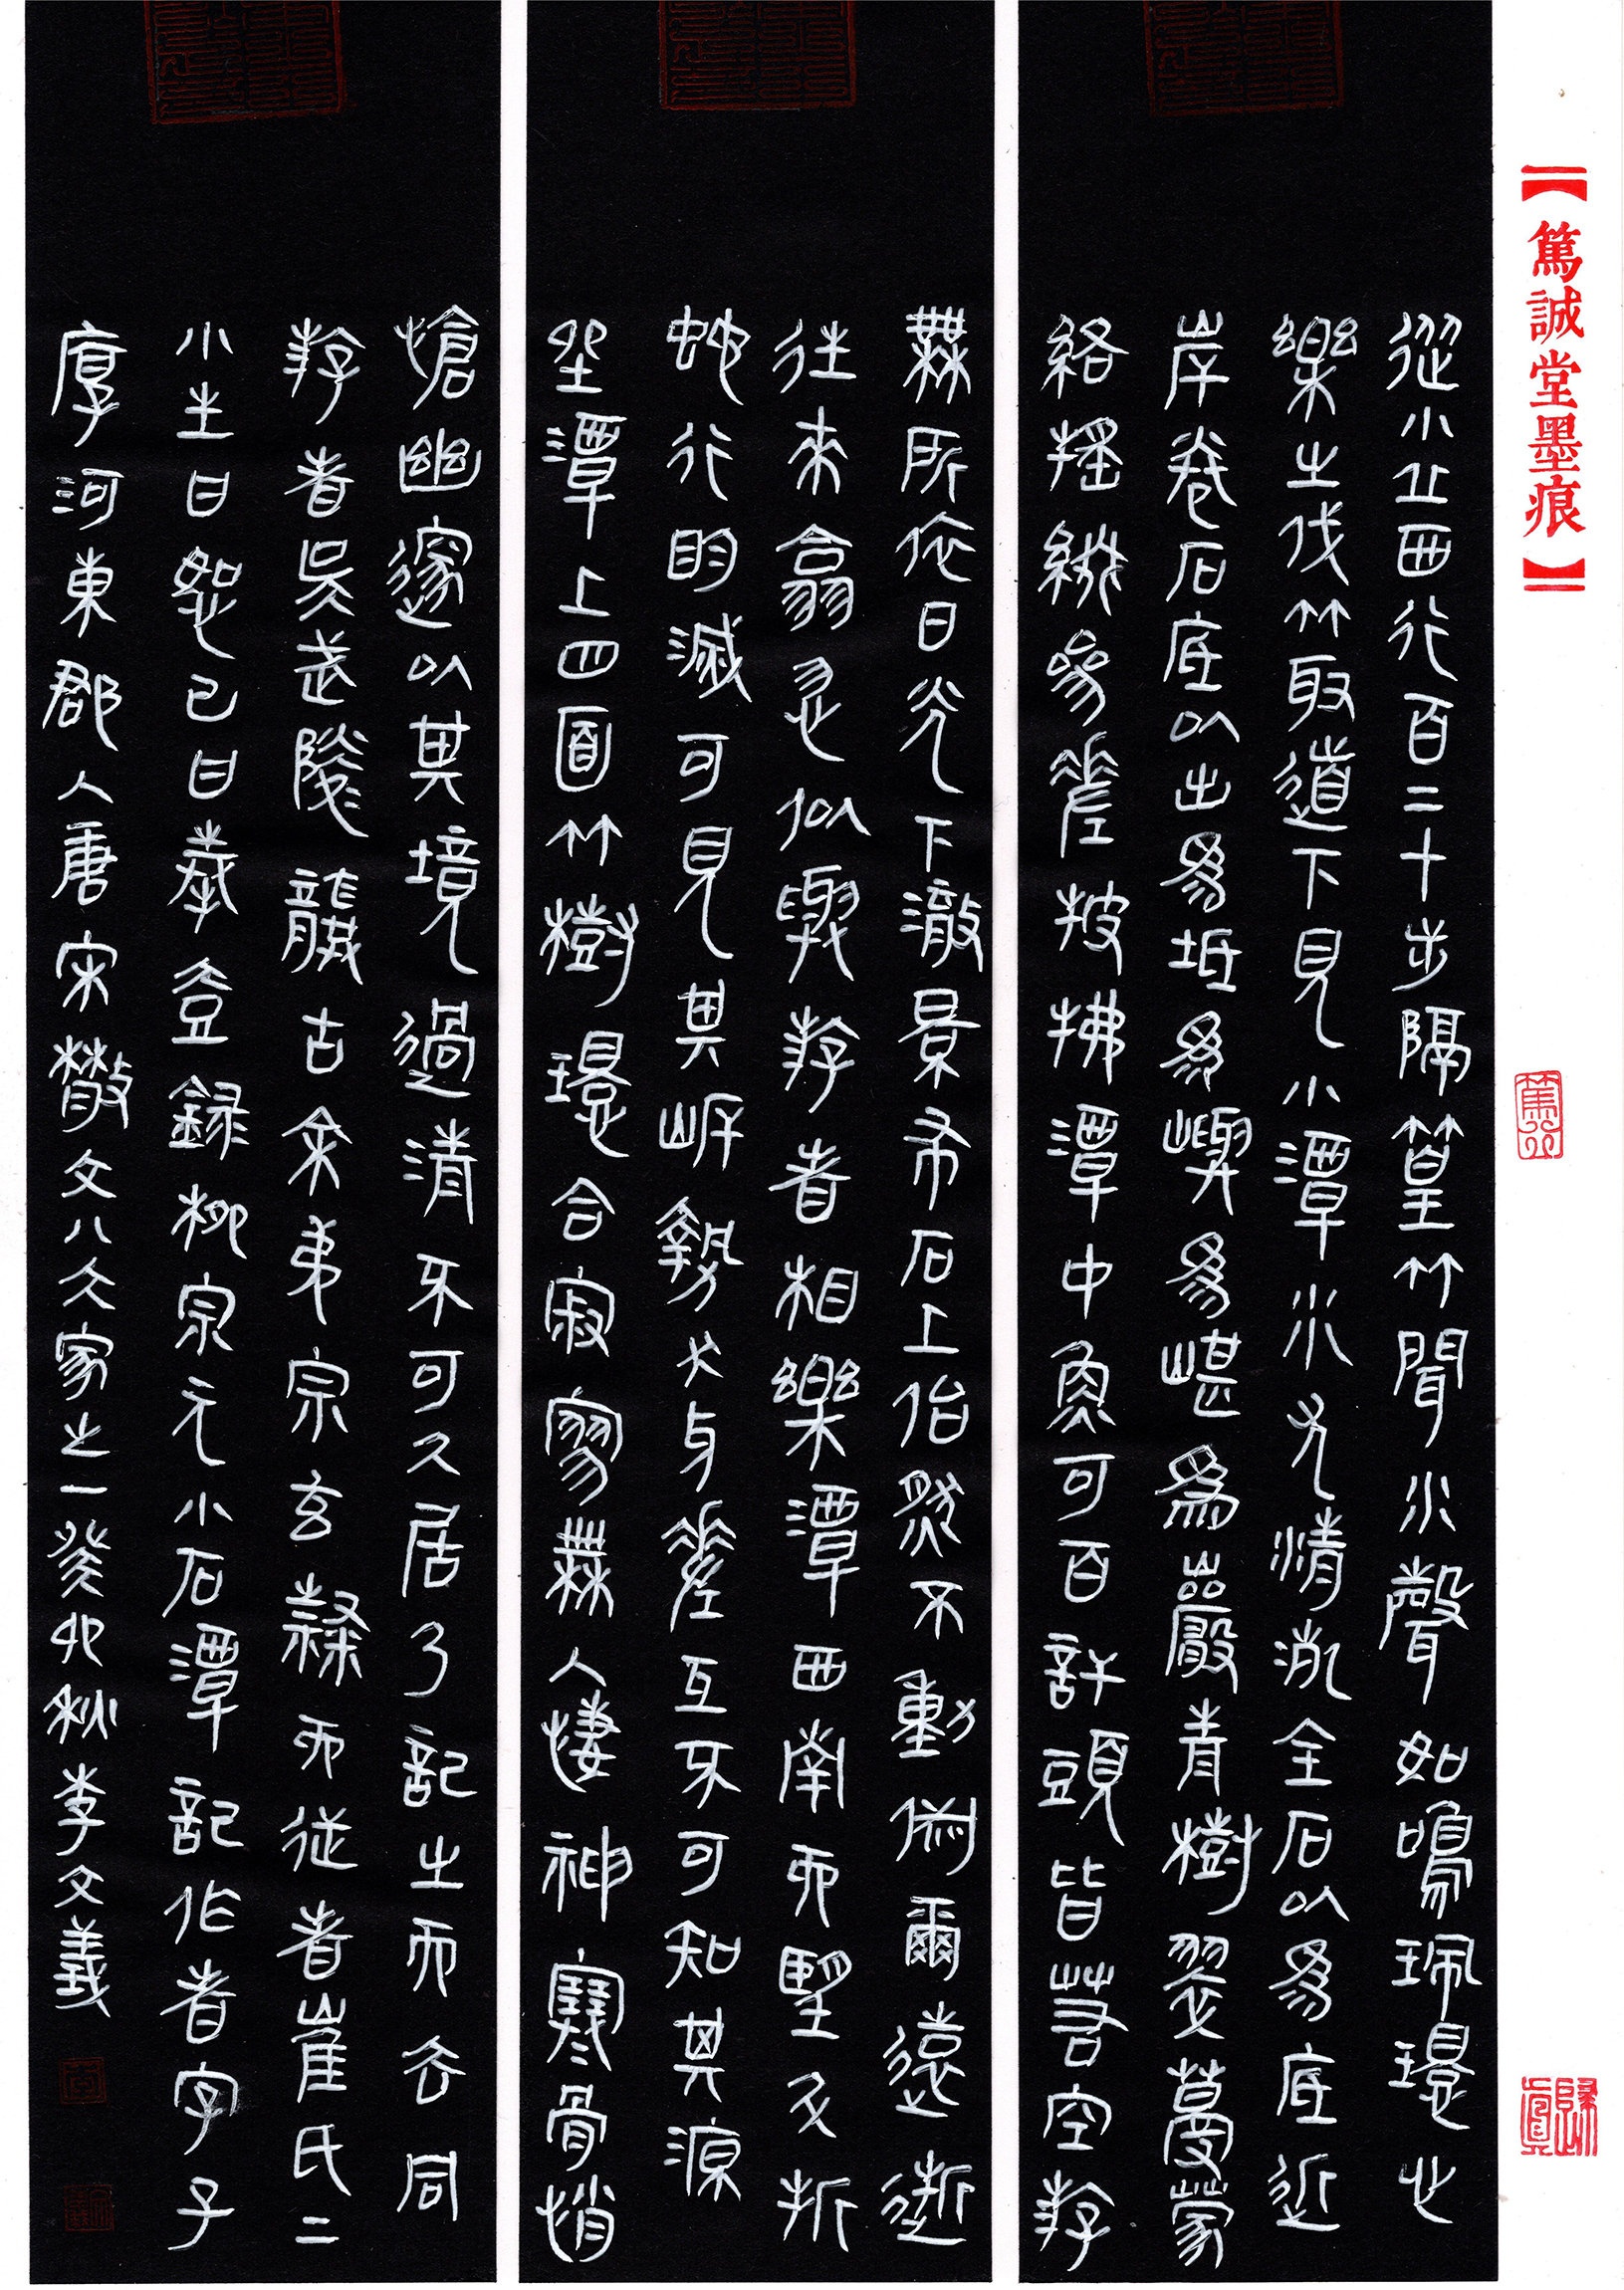 【篤誠堂墨痕】
從小丘西行百二十步隔篁竹聞水聲如鳴珮環心
樂之伐竹取道下見小潭水尤清冽全石以為底近
岸卷石底以出為坻為嶼為嵁為巖青樹翠蔓蒙
絡搖綴參差披拂潭中魚可百許頭皆若空游
無所依日光下澈景布石上佁然不動俶爾遠逝
往來翕忽似與游者相樂潭西南而望斗折
蛇行明滅可見其岸勢犬牙差互不可知其源
坐潭上四面竹樹環合寂寥無人悽神寒骨悄
愴幽邃以其境過清不可久居乃記之而去同
游者吳武陵龔古余弟宗玄隸而從者崔氏二
小生曰恕己曰奉壹錄柳宗元小石潭記作者字子
厚河東郡人唐宋散文八大家之一癸卯秋李文義